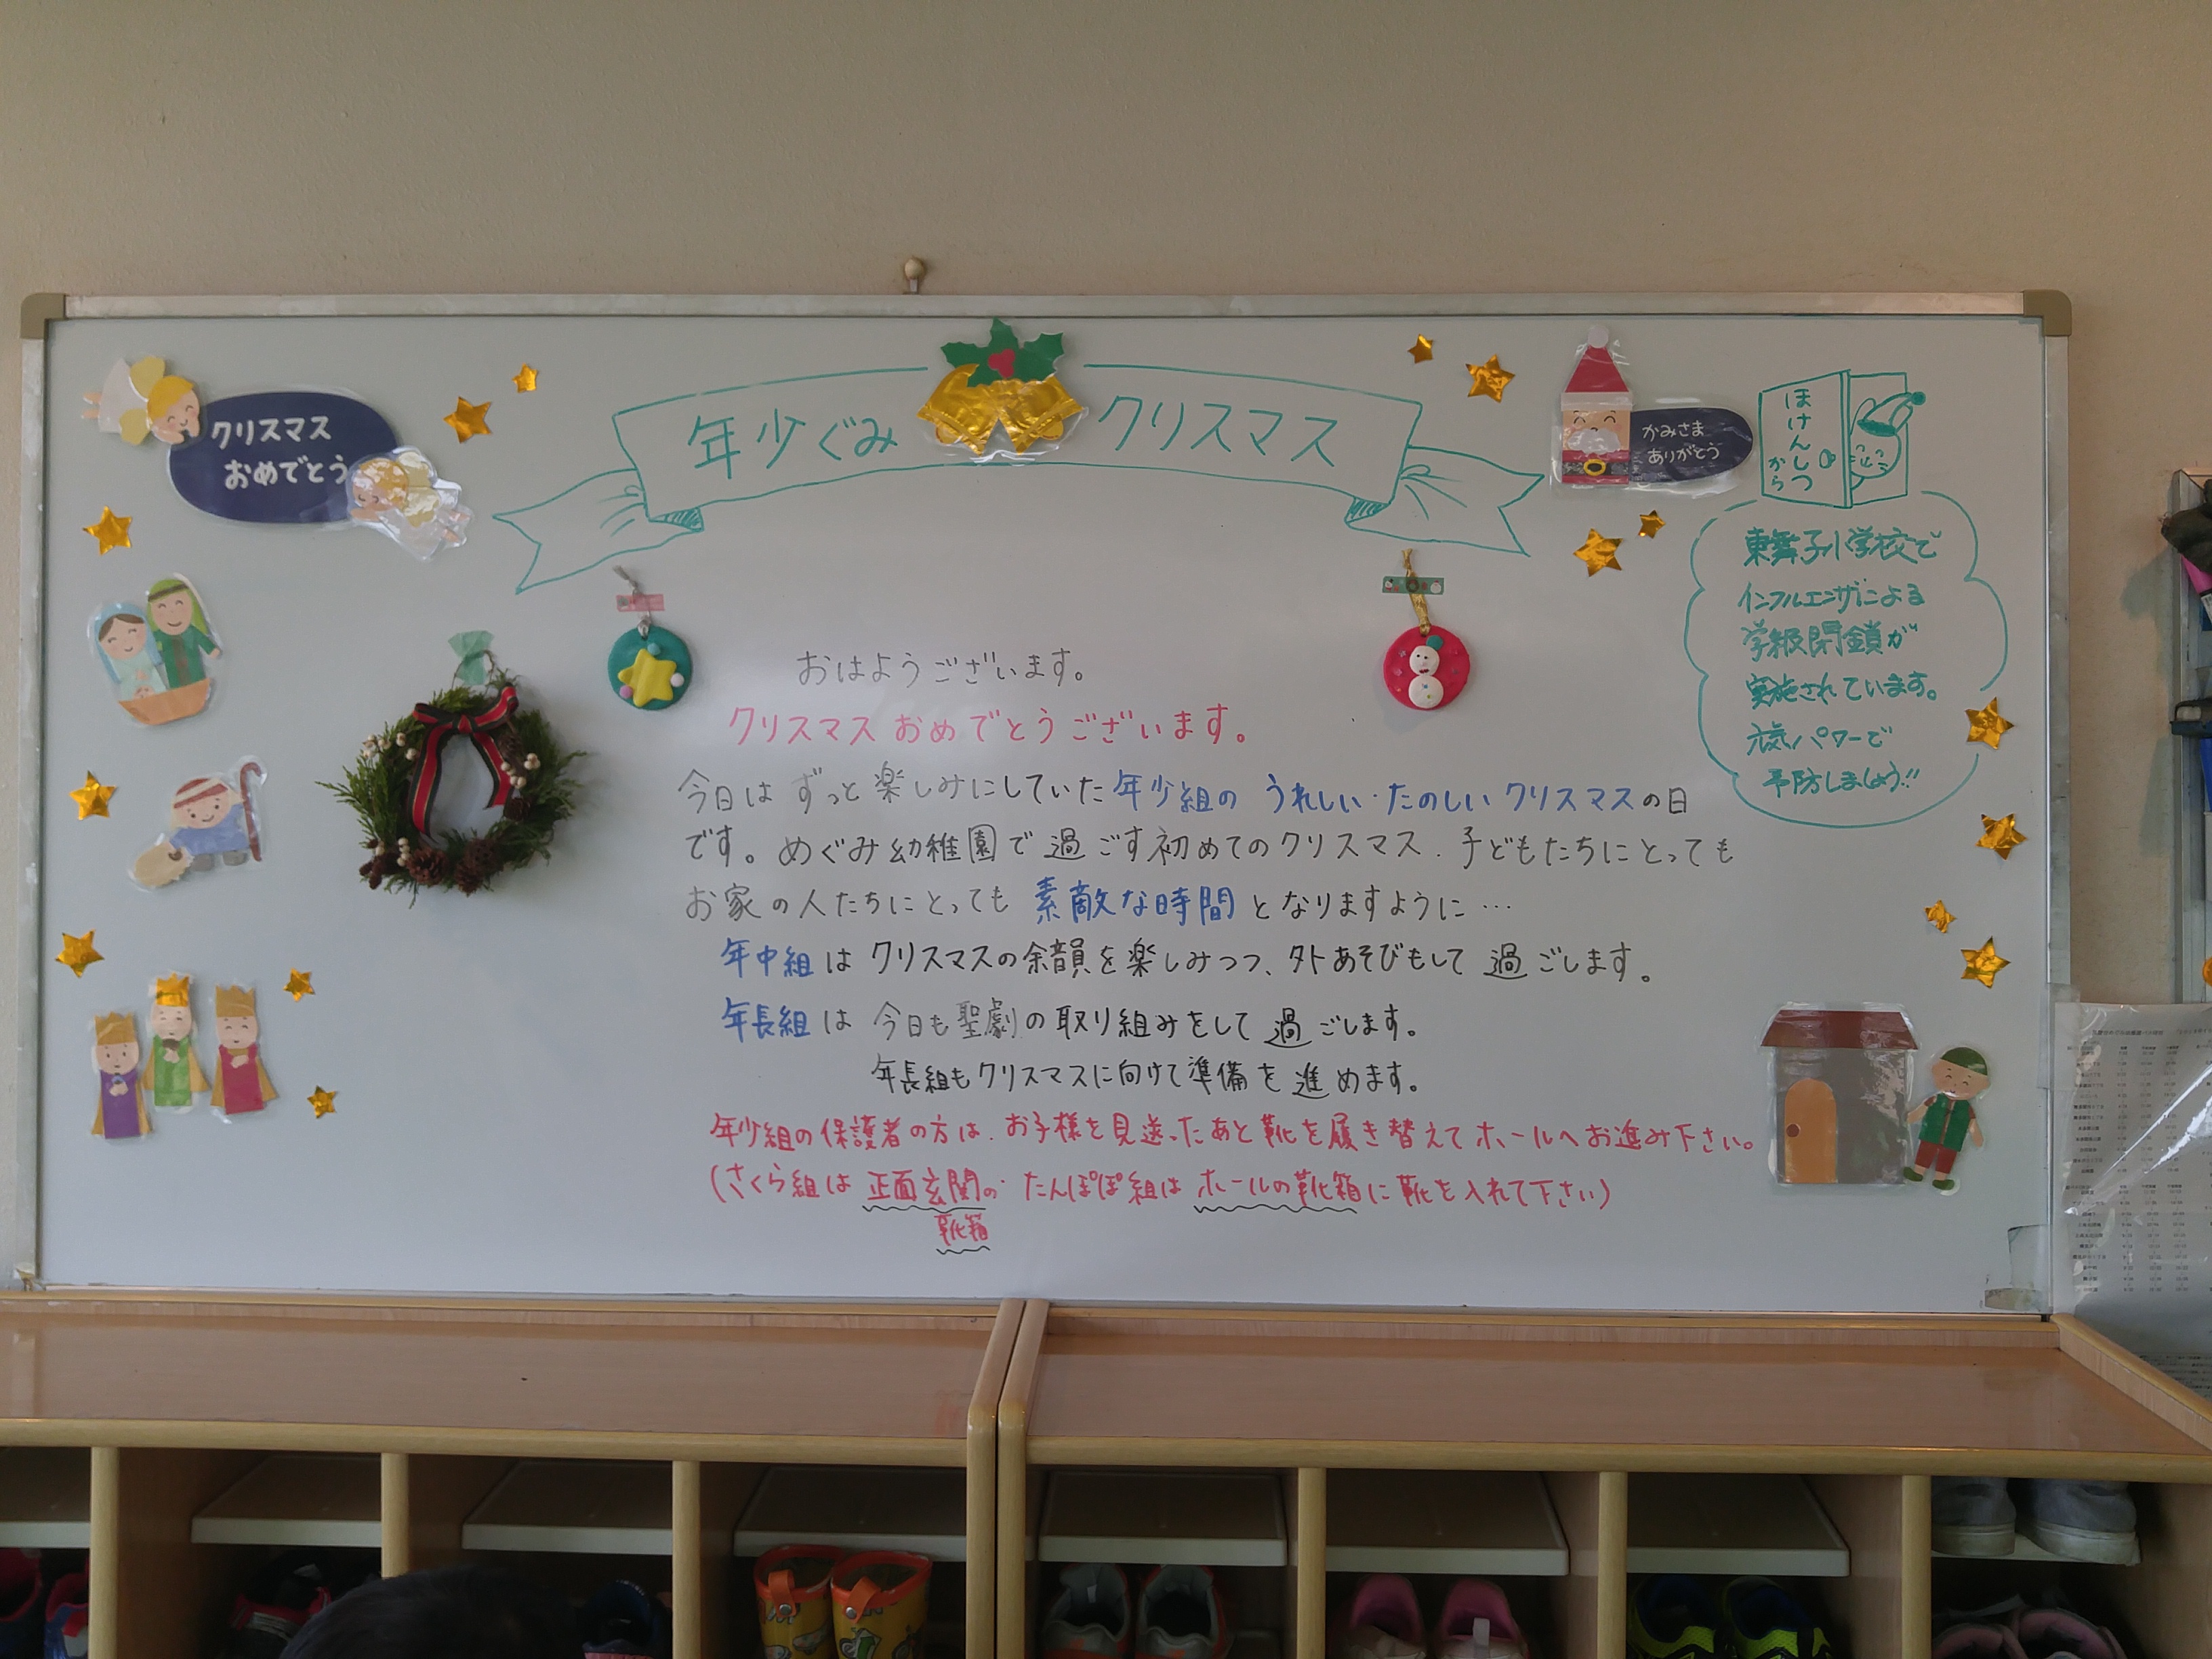 クリスマス
おめでとう
年少ぐみ クリスマス
かみさま
ありがとう
ほけんしつ
から
東舞子小学校で
インフルエンザによる
学級閉鎖が
実施されています。
元気パワーで
予防しましょう!!
おはようございます。
クリスマスおめでとうございます。
今日はずっと楽しみにしていた年少組の うれしい・たのしいクリスマスの日
です。めぐみ幼稚園で過ごす初めてのクリスマス、子どもたちにとっても
お家の人たちにとっても素敵な時間となりますように…
年中組はクリスマスの余韻を楽しみつつ、外あそびもして過ごします。
年長組は今日も聖劇の取り組みをして過ごします。
年長組もクリスマスに向けて準備を進めます。
年少組の保護者の方は、お子様を見送ったあと靴を履き替えてホールへお進み下さい。
(さくら組は正面玄関の・たんぽぽ組はホールの靴箱に靴を入れて下さい)
靴箱